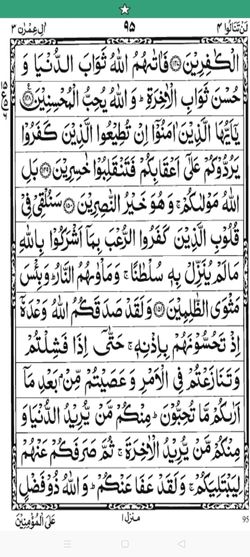 لن تنالوا ٤
٩٥
اٰل عمرٰن ٣
الْكٰفِرِيْنَ ﴿۱۴۷﴾ فَاٰتٰىهُمُ اللّٰهُ ثَوَابَ الدُّنْيَا وَ
حُسْنَ ثَوَابِ الْاٰخِرَةِ ؕ وَاللّٰهُ يُحِبُّ الْمُحْسِنِيْنَ ﴿۱۴۸﴾
يٰۤاَيُّهَا الَّذِيْنَ اٰمَنُوْۤا اِنْ تُطِيْعُوا الَّذِيْنَ كَفَرُوْا
يَرُدُّوْكُمْ عَلٰۤى اَعْقَابِكُمْ فَتَنْقَلِبُوْا خٰسِرِيْنَ ﴿۱۴۹﴾ بَلِ
اللّٰهُ مَوْلٰىكُمْ ۚ وَهُوَ خَيْرُ النّٰصِرِيْنَ ﴿۱۵۰﴾ سَنُلْقِيْ فِيْ
قُلُوْبِ الَّذِيْنَ كَفَرُوا الرُّعْبَ بِمَاۤ اَشْرَكُوْا بِاللّٰهِ
مَا لَمْ يُنَزِّلْ بِهٖ سُلْطٰنًا ۚ وَمَاْوٰىهُمُ النَّارُ ؕ وَبِئْسَ
مَثْوَى الظّٰلِمِيْنَ ﴿۱۵۱﴾ وَلَقَدْ صَدَقَكُمُ اللّٰهُ وَعْدَهٗۤ
اِذْ تَحُسُّوْنَهُمْ بِاِذْنِهٖ ۚ حَتّٰۤى اِذَا فَشِلْتُمْ
وَتَنَازَعْتُمْ فِي الْاَمْرِ وَعَصَيْتُمْ مِّنْۢ بَعْدِ مَاۤ
اَرٰىكُمْ مَّا تُحِبُّوْنَ ؕ مِنْكُمْ مَّنْ يُّرِيْدُ الدُّنْيَا وَ
مِنْكُمْ مَّنْ يُّرِيْدُ الْاٰخِرَةَ ۚ ثُمَّ صَرَفَكُمْ عَنْهُمْ
لِيَبْتَلِيَكُمْ ۚ وَلَقَدْ عَفَا عَنْكُمْ ؕ وَاللّٰهُ ذُوْ فَضْلٍ
عَلَى الْمُؤْمِنِيْنَ
منزل ۱
95